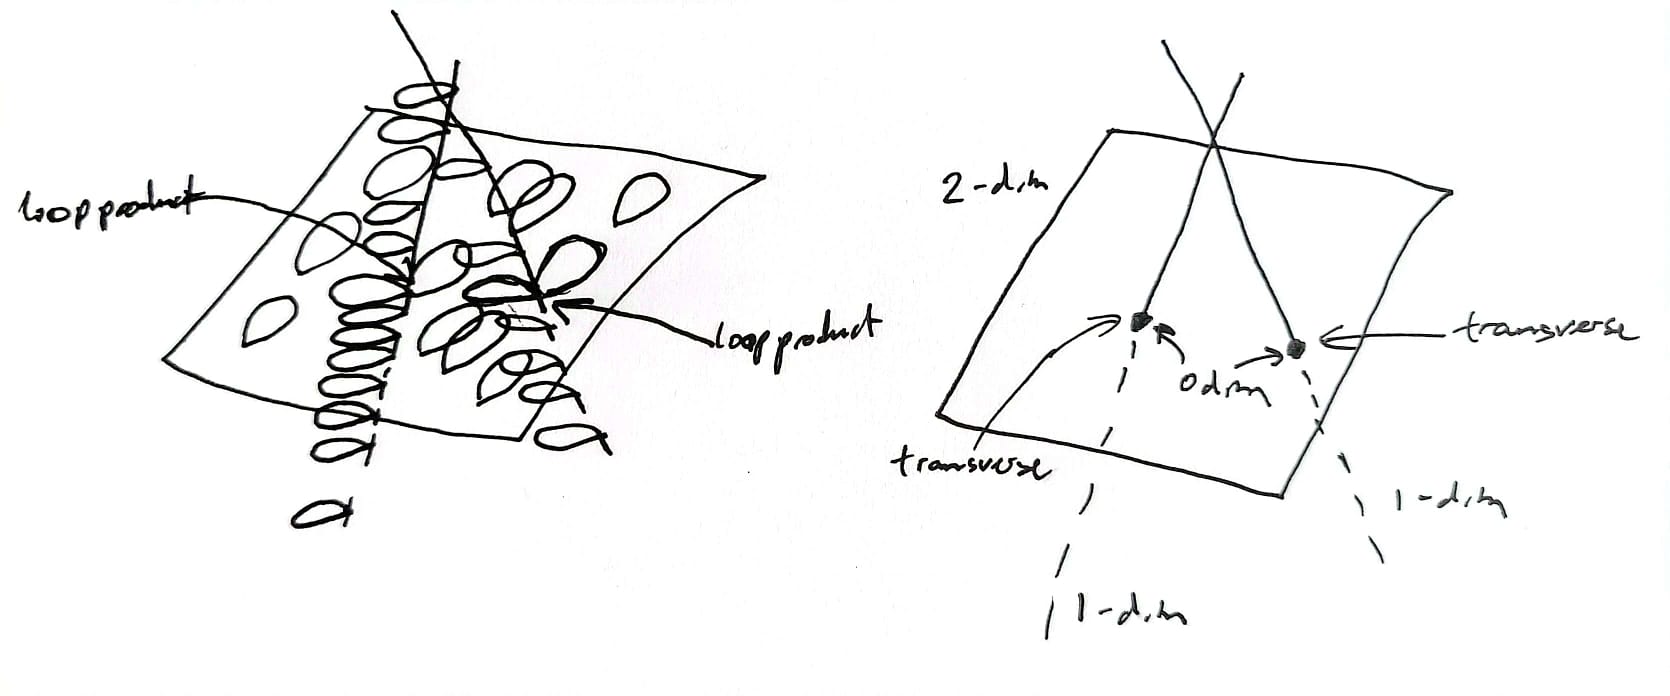 loop product
loop product
2-dim
transverse
0dim
transverse
1-dim
1-dim